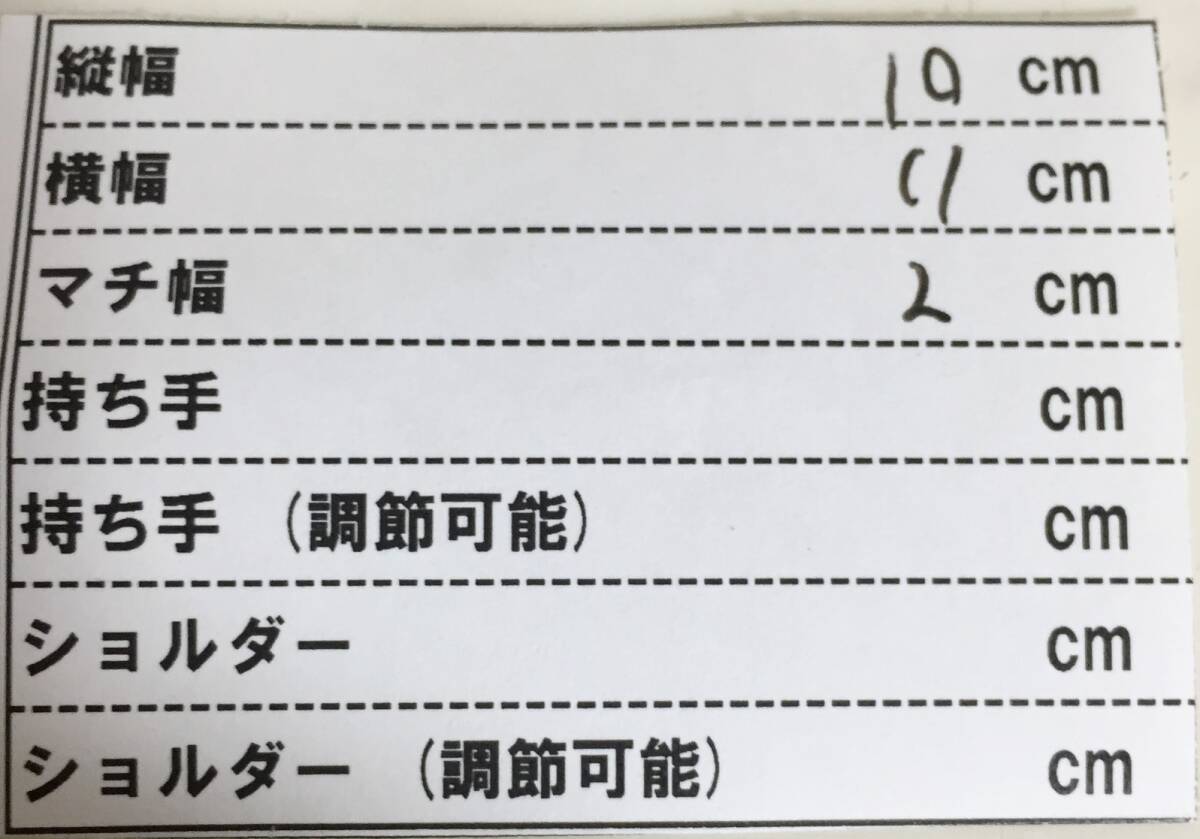 縦幅 10 cm
横幅 11 cm
マチ幅 2 cm
持ち手 cm
持ち手 (調節可能) cm
ショルダー cm
ショルダー (調節可能) cm